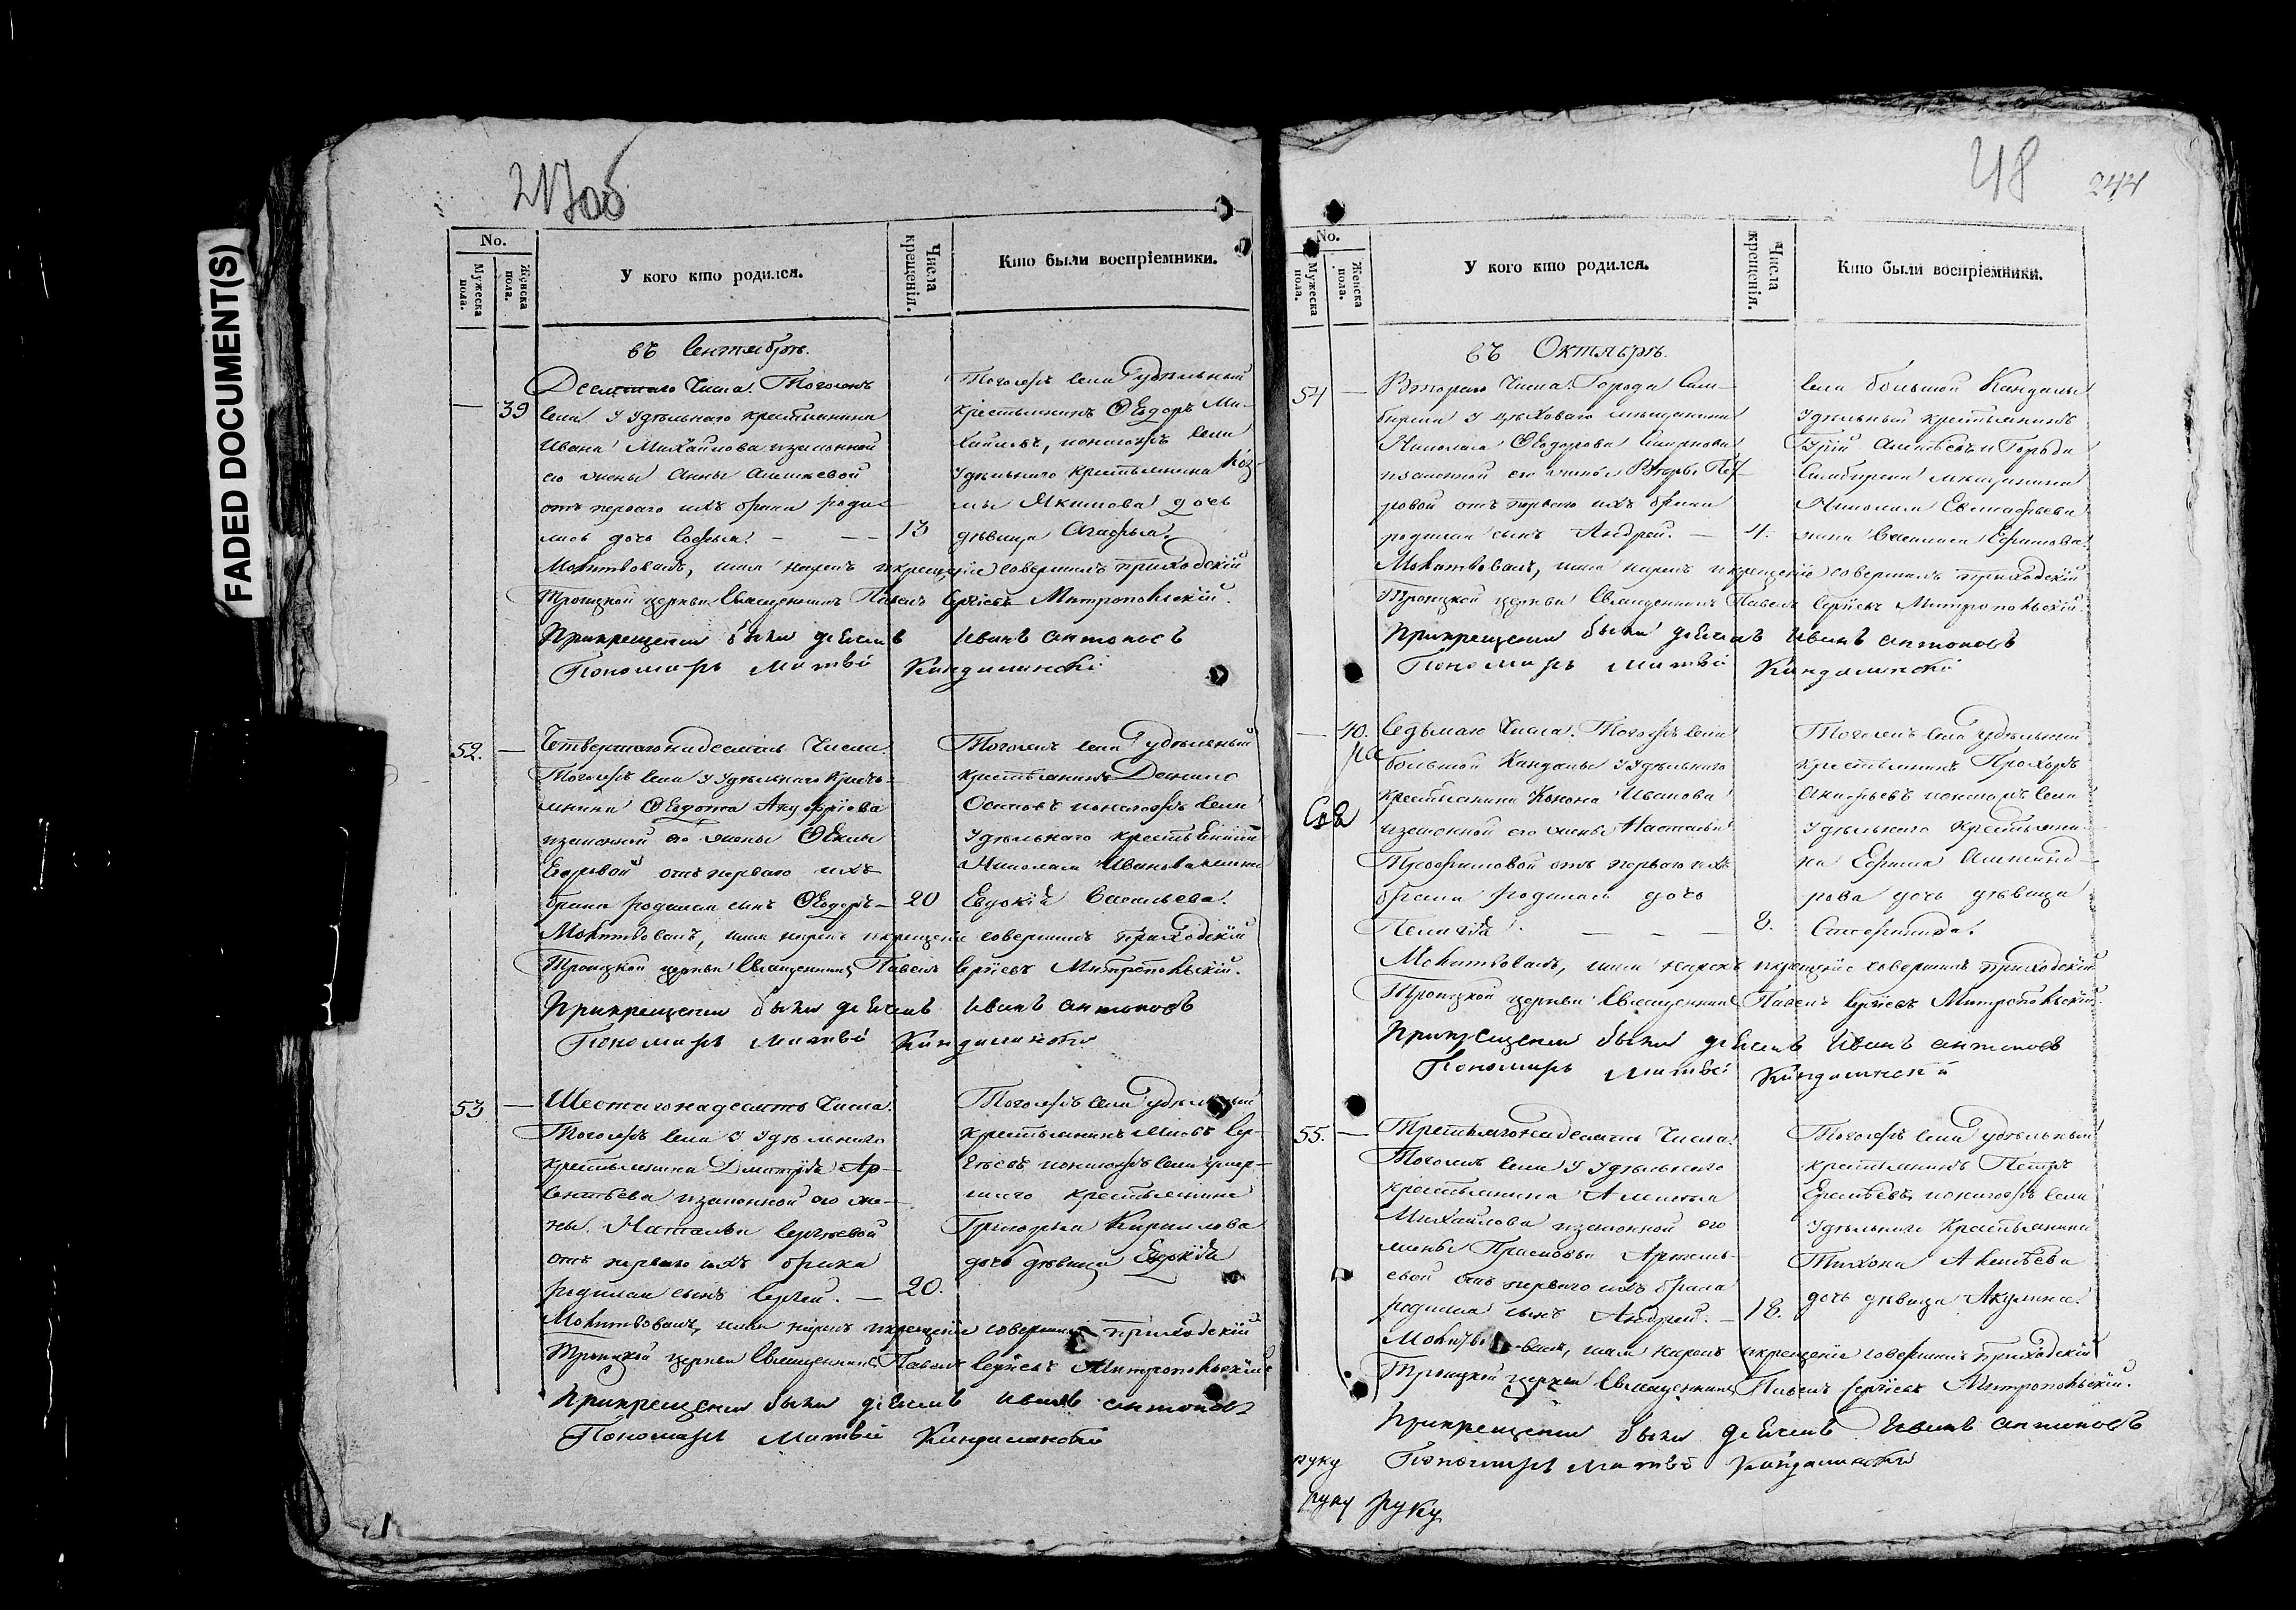 FADED DOCUMENT(S)
217об
No.
Мужеска пола.
Женска пола.
У кого кто родился.
Числа крещенія.
Кто были воспріемники.
въ Сентябрѣ.
39
Десятаго Числа. Тогожъ
села У Удѣльнаго крестьянина
Ивана Михайлова изаконной
его жены Анны Алексѣевой
отъ перваго ихъ брака роди-
лась дочь Софья.
13
Тогожъ села Удѣльный
крестьянинъ Ѳеодоръ Ми-
хайловъ, итогожъ села
Удѣльнаго крестьянина Коз-
мы Якимова дочь
дѣвица Агафья.
Молитвовалъ, имя нарекъ икрещеніе совершилъ приходскій
Троицкой церкви Священникъ Павелъ Сергіевъ Митропольскій.
Прикрещении были дьячокъ Иванъ Антоновъ
Пономарь Матвѣй Кандалинскій
52.
Четвертагонадесять Числа.
Тогожъ села У Удѣльнаго Кресть-
янина Ѳедота Ануфріева
изаконной его жены Ѳеклы
Егоровой отъ перваго ихъ
брака родился сынъ Ѳеодоръ
20
Тогожъ села Удѣльный
крестьянинъ Данило
Осиповъ итогожъ села
Удѣльнаго крестьянина
Николая Иванова жена
Евдокія Васильева.
Молитвовалъ, имя нарекъ икрещеніе совершилъ приходскій
Троицкой церкви Священникъ Павелъ Сергіевъ Митропольскій.
Прикрещении были дьячокъ Иванъ Антоновъ
Пономарь Матвѣй Кандалинскій
53
Шестагонадесять Числа.
Тогожъ села У Удѣльнаго
крестьянина Дмитрія Ар-
сентьева изаконной его же-
ны Натальи Сергѣевой
отъ перваго ихъ брака
родился сынъ Сергѣй.
20.
Тогожъ села Удѣльный
крестьянинъ Яковъ Сер-
гѣевъ итогожъ села умер-
шаго крестьянина
Григорья Кирилова
дочь дѣвица Евдокія
Молитвовалъ, имя нарекъ икрещеніе совершилъ приходскій
Троицкой церкви Священникъ Павелъ Сергіевъ Митропольскій
Прикрещении были дьячокъ Иванъ Антоновъ
Пономарь Матвѣй Кандалинскій
48
244
No.
Мужеска пола.
Женска пола.
У кого кто родился.
Числа крещенія.
Кто были воспріемники.
въ Октябрѣ.
54
Втораго Числа. Города Сим-
бирска У цѣховаго мѣщанина
Николая Ѳеодорова Смирнова
изаконной его жены Варвары Пет-
ровой отъ перваго ихъ брака
родился сынъ Андрей.
4.
села большой Кандалы
Удѣльный крестьянинъ
Гурій Алексѣевъ и Города
Симбирска мѣщанина
Николая Евстафьева
жена Василиса Ефимова.
Молитвовалъ, имя нарекъ икрещеніе совершилъ приходскій
Троицкой церкви Священникъ Павелъ Сергіевъ Митропольскій.
Прикрещении были дьячокъ Иванъ Антоновъ
Пономарь Матвѣй Кандалинскій
40.
Седьмаго Числа. Тогожъ села
большой Кандалы У Удѣльнаго
крестьянина Конона Иванова
изаконной его жены Настасьи
Трофимовой отъ перваго ихъ
брака родилась дочь
Пелагія.
8.
Тогожъ села Удѣльный
крестьянинъ Прохоръ
итогожъ села
Удѣльнаго Крестьяни-
на Ефима Александ-
рова дочь дѣвица
Молитвовалъ, имя нарекъ икрещеніе совершилъ приходскій
Троицкой церкви Священникъ Павелъ Сергіевъ Митропольскій.
Прикрещении были дьячокъ Иванъ Антоновъ
Пономарь Матвѣй Кандалинскій
55.
Третьягонадесять Числа.
Тогожъ села У Удѣльнаго
крестьянина
Михайлова изаконной его
жены Прасковьи Артемь-
евой отъ перваго ихъ брака
родился сынъ Андрей.
18.
Тогожъ села Удѣльный
крестьянинъ Петръ
итогожъ села
Удѣльнаго Крестьянина
Тихона
дочь дѣвица Акулина.
Молитвовалъ, имя нарекъ икрещеніе совершилъ приходскій
Троицкой церкви Священникъ Павелъ Сергіевъ Митропольскій.
Прикрещении были дьячокъ Иванъ Антоновъ
руку Пономарь Матвѣй Кандалинскій
руку руку